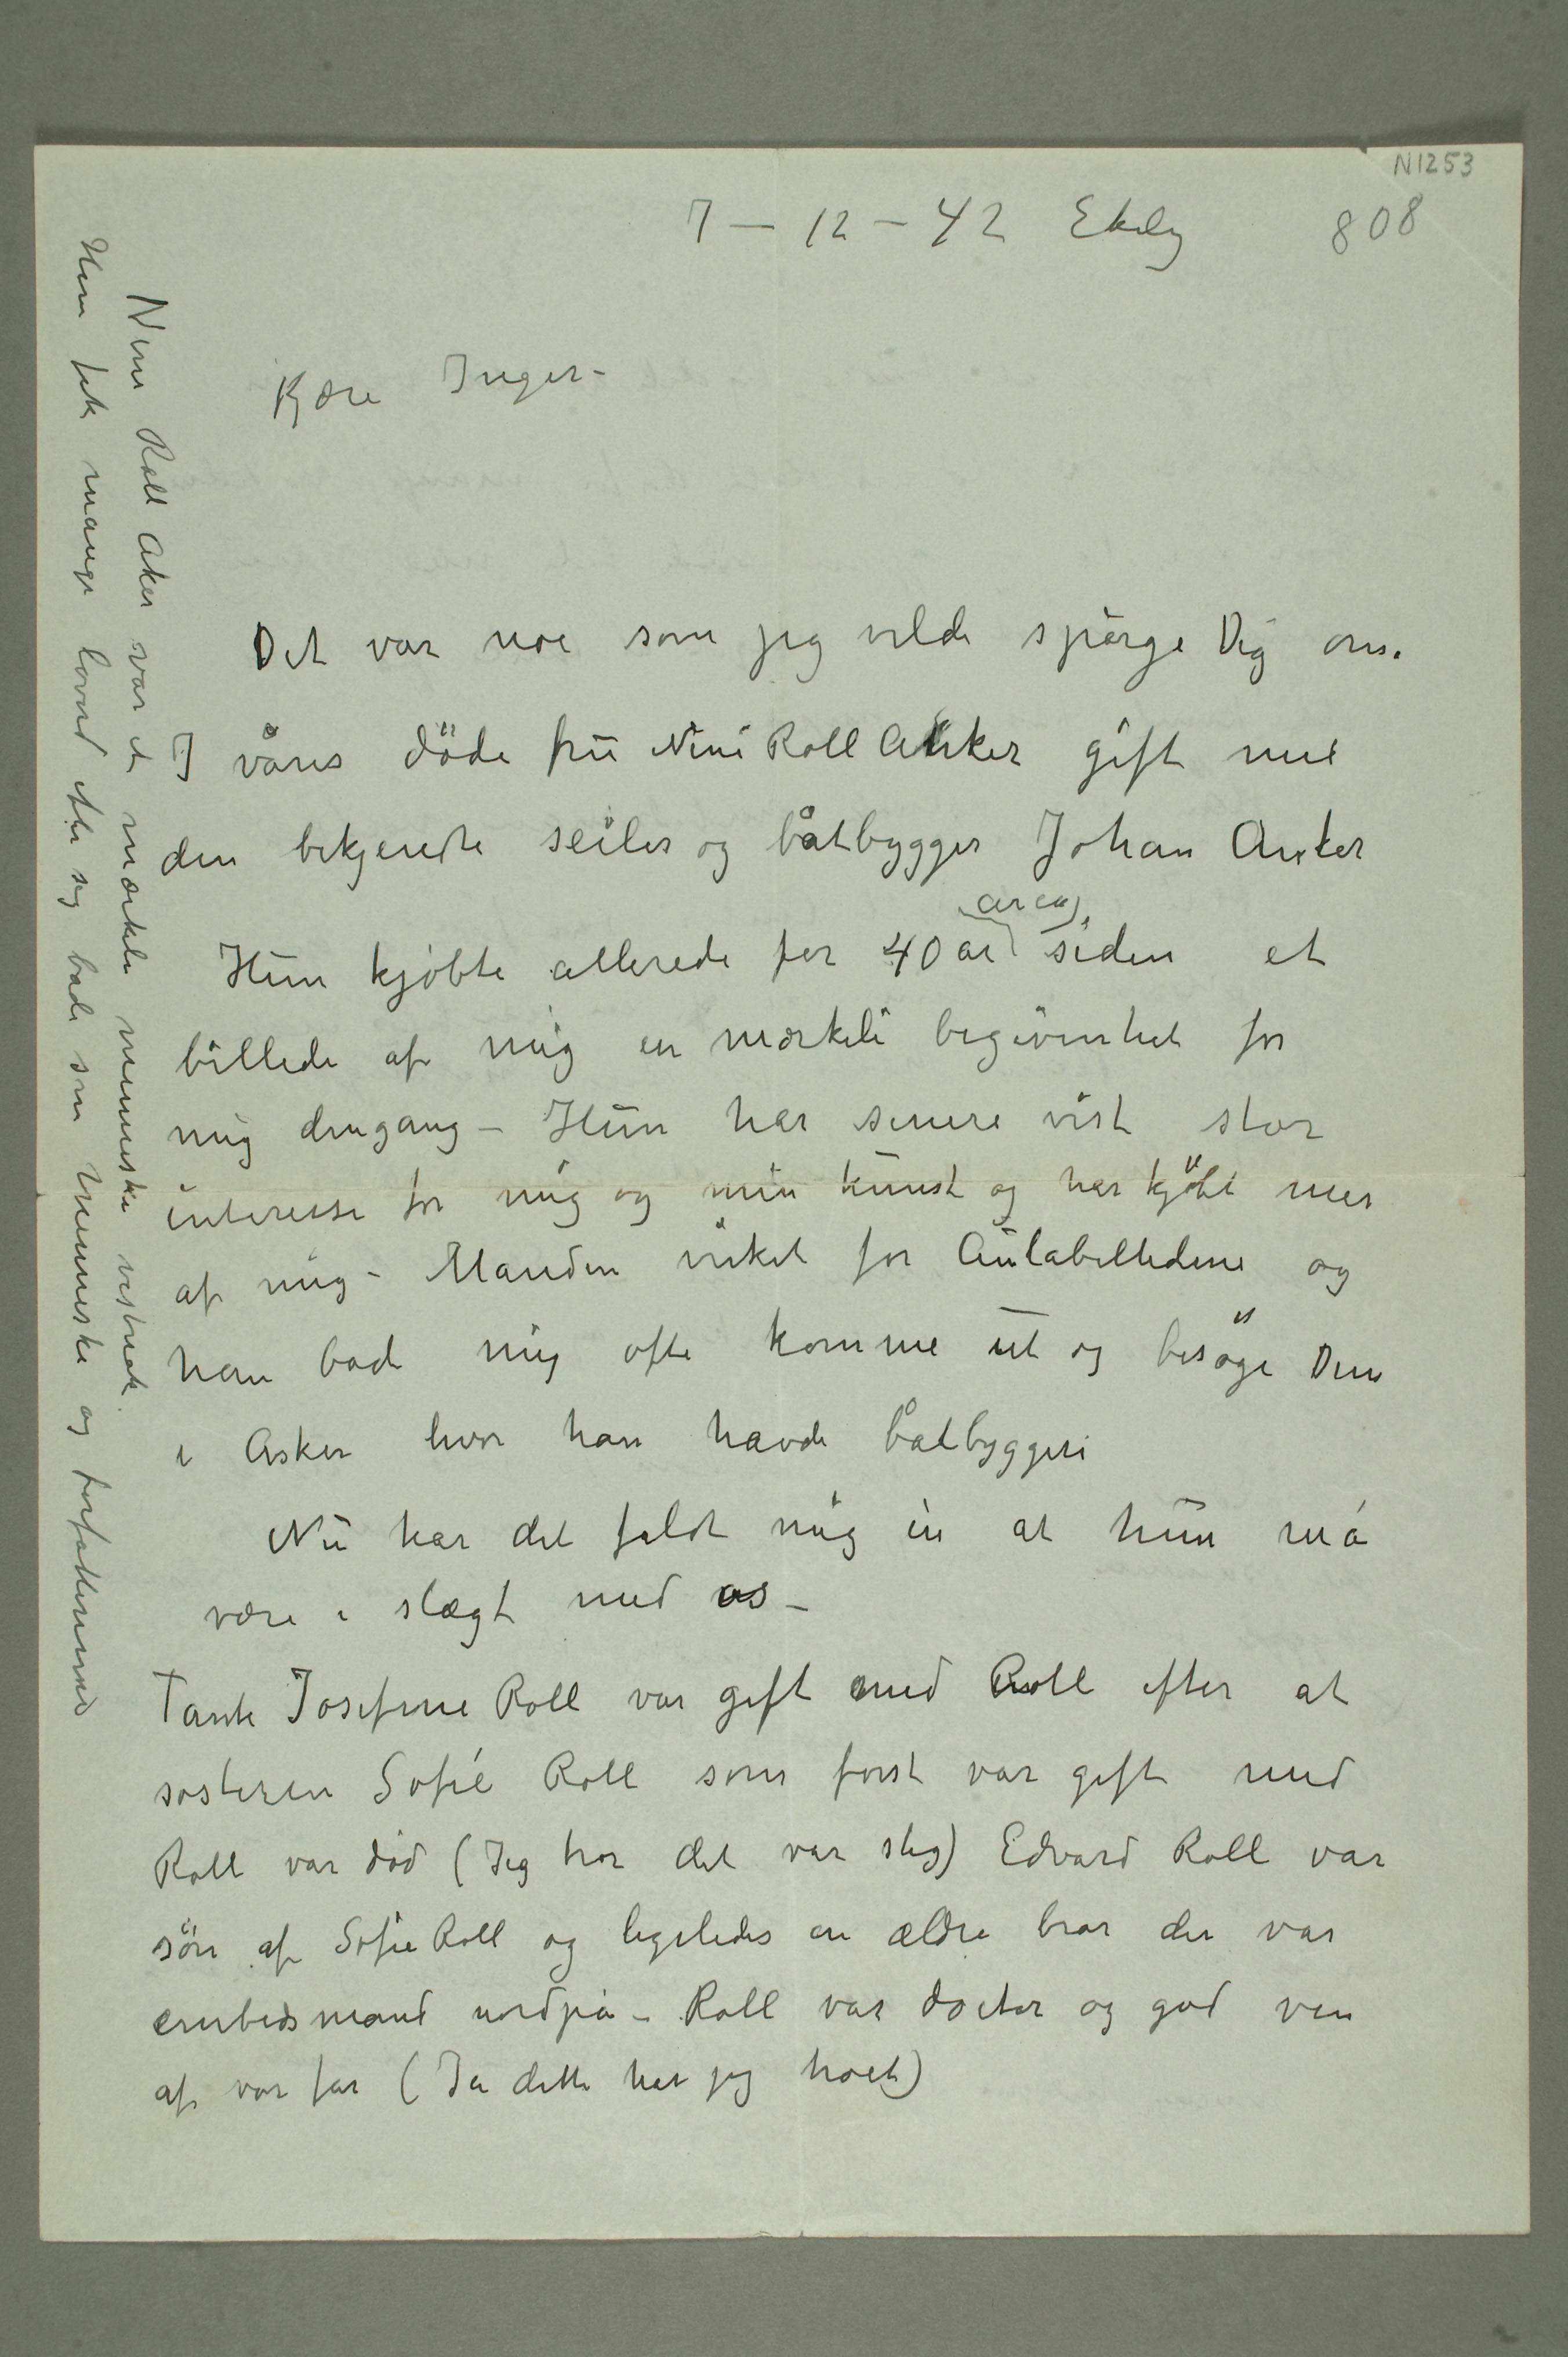 N1253
7 – 12 – 42 Ekely
808
Kjære Inger –
Det var noe som jeg vilde spørge Dig om.
I våres döde frü Nini Roll Anker gift med
den bekjendte seiler og båtbygger Johan Anker
Hun kjøbte allerede for 40 år (circa) siden et
billede af mig en mærkeli begivenhet for
mig dengang – Hun har senere vist stor
interesse for mig og min kunst og har kjöbt mer
af mig – Manden virket for Aulabilledene og
han bad mig ofte komme ut og besöge Dem
i Asker hvor han havde båtbyggeri
Nu har det faldt mig in at hun må
være i slægt med os –
Tante Josefine Roll var gift med Roll efter at
søsteren Sofie Roll som først var gift med
Roll var død (Jeg tror det var slig) Edvard Roll var
sön af Sofie Roll og ligeledes en ældre bror der var
embedsmand nordpå – Roll var doctor og god ven
af vor far (Ja dette har jeg troet)
Nini Roll Aker var et mærkeli menneske vistnok.
Hun fik mange lovord efter sig både som menneske og forfatterinne